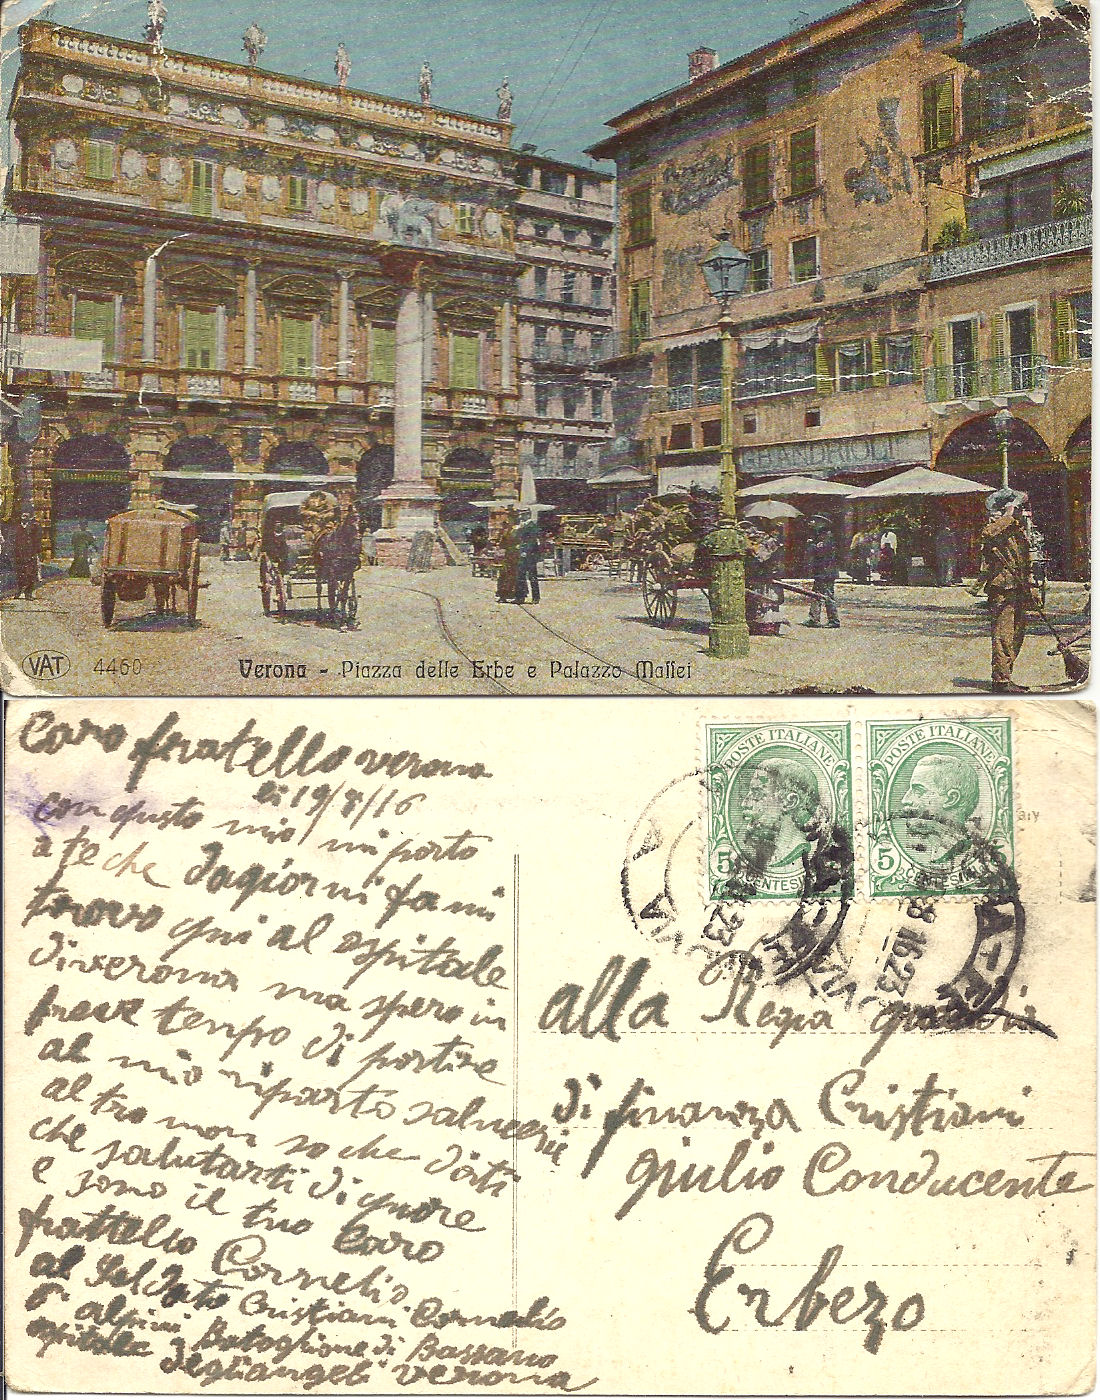 GBANDRIOLI
VAT 4460 Verona - Piazza delle Erbe e Palazzo Maffei
Caro fratello verona
li 19/8/16
con questo mio mi porto
a te che dagiorni fa mi
trovo qui al ospitale
diverona ma spero in
breve tempo di partire
al mio riparto salmerie
altro non so che dirti
che salutarti di quore
e sono il tuo Caro
frattello Cornelio
al Soldato Cristiani Cornelio
6. alpini Batoglione di Bassano
ospitale degliangeli verona
POSTE ITALIANE
5 CENTESIMI
POSTE ITALIANE
5 CENTESIMI
8 16 23
alla Regia guardia
di finanza Cristiani
giulio Conducente
Erbezo